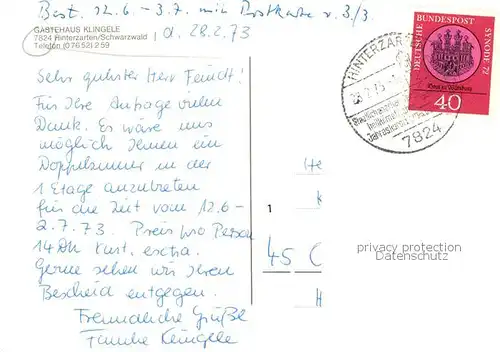 Best. 12.6 - 3.7. mit Postkarte v. 3/3.
GÄSTEHAUS KLINGELE
7824 Hinterzarten/Schwarzwald
Telefon (07652) 259
, d. 28.2.73
Sehr geehrter Herr
Für Ihre Anfrage vielen
Dank. Es wäre uns
möglich Ihnen ein
Doppelzimmer in der
1 Etage anzubieten
für die Zeit vom 12.6 -
2.7.73. Preis pro Person
14 DM Kurt. extra.
Gerne sehen wir Ihren
Bescheid entgegen.
Freundliche Grüße
Familie Klingele
DEUTSCHE BUNDESPOST
SYNODE 72
40
HINTERZAR
28.2.73
7824
1
45
privacy protection
Datenschutz